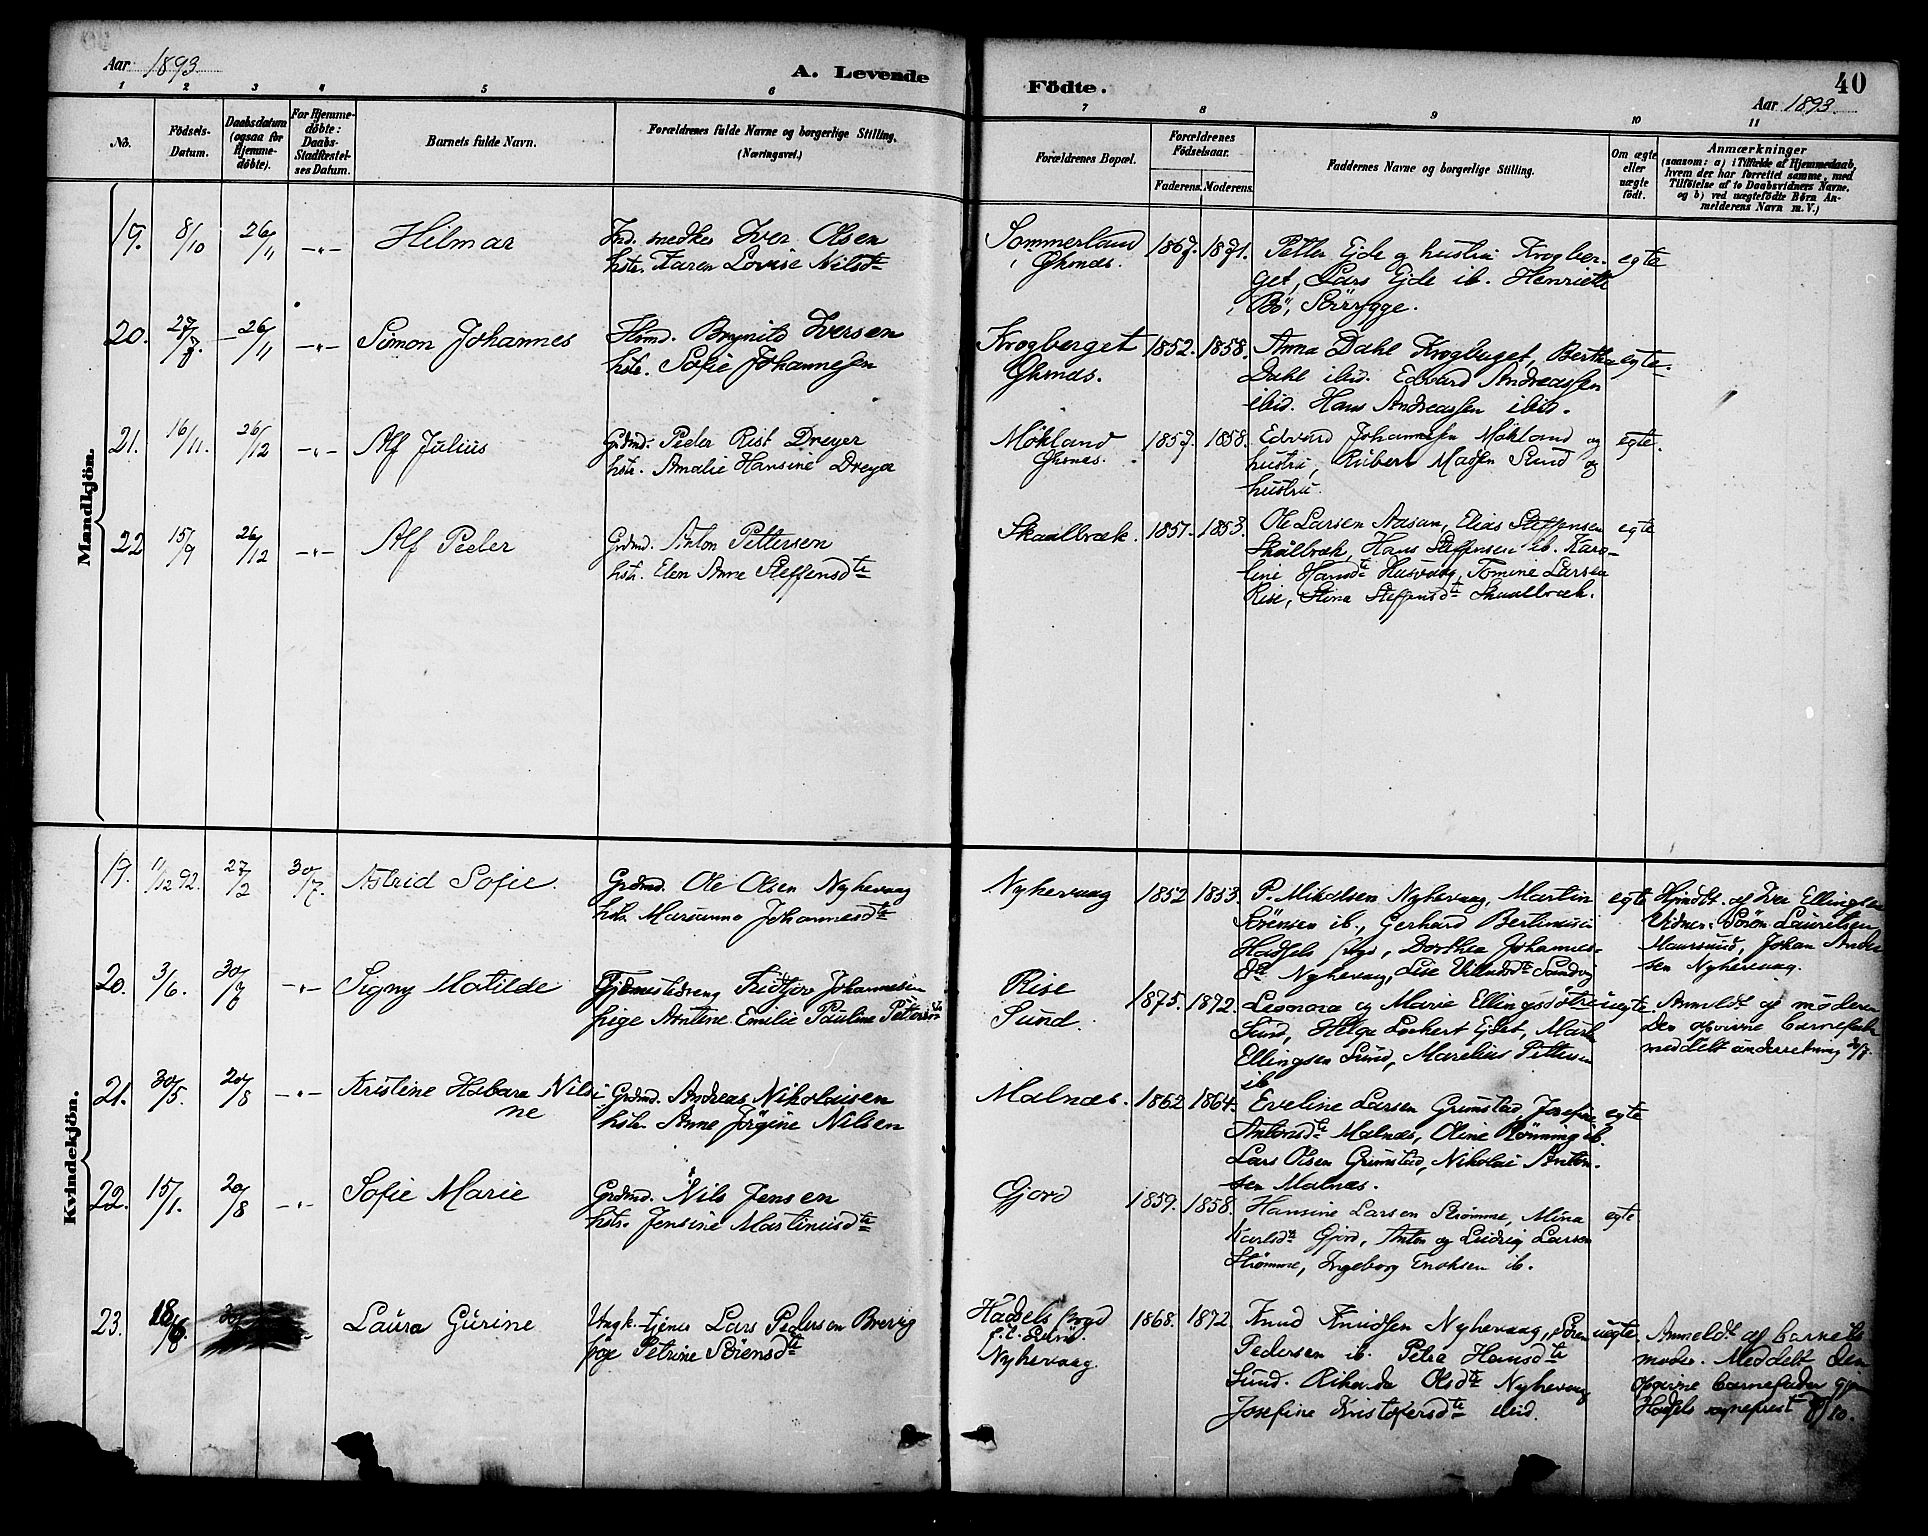 Aar 1893
A. Levende
Födte.
40
Aar 1893
1 2 3 4 5 6 7 8 9 10 11
No.
Födsels-
Datum.
Daabsdatum
(ogsaa for
Hjemme-
döbte).
For Hjemme-
döbte:
Daabs-
Stadfæstel-
ses Datum.
Barnets fulde Navn.
Forældrenes fulde Navne og borgerlige Stilling.
(Næringsvei.)
Forældrenes Bopæl.
Forældrenes
Födselsaar.
Faderens. Moderens.
Faddernes Navne og borgerlige Stilling.
Om ægte
eller
uægte
födt.
Anmærkninger
(saasom: a) i Tilfælde af Hjemmedaab,
hvem der har forrettet samme, med
Tilföielse af to Daabsvidners Navne,
og b) ved uægtefödte Börn An-
melderens Navn m. V.)
Mandkjön.
19. 8/10 26/11 -"- Hilmar
Ind. snedker Iver Olsen
hstr. Karen Lovise Nilsdtr
Sommerland
Øksnæs.
1867. 1871.
Petter Ejde og hustru Krogber-
get, Lars Ejde ib. Henriette
Bö, Störrygge.
egte
20. 27/7. 26/11 -"- Simon Johannes
Hsmd. Brynild Iversen
hstr. Sofie Johannessen
Krogberget
Øksnæs.
1852. 1858.
Anna Dahl Krogberget, Bertha
Dahl ibid. Edvard Andreassen
ibid. Hans Andreassen ibid.
egte.
21. 16/11. 26/12 -"- Alf Julius
Grdmd. Peder Rist Dreyer
hstr. Amalie Hansine Dreyer
Møkland
Øksnæs.
1857. 1858.
Edvard Johannesen Møkland og
hustru, Rubert Madsen Sund og
hustru.
egte.
22 15/9 26/12 -"- Alf Peder
Grdmd. Anton Pettersen
hstr. Elen Anne Steffensdtr
Skaalbræk.
1851. 1853.
Ole Larsen Aasan, Elias Steffensen
Skålbræk, Hans Steffensen ib. Karo-
line Hansdtr Husvaag, Tomine Larsen
Rise, Stina Steffensdtr Skaalbræk.
egte
Kvindekjön.
19. 1/12 92. 27/2 30/7. Astrid Sofie.
Grdmd. Ole Olsen Nyhevaag
hstr. Marianna Johannesdtr
Nyhevaag
1852 1853.
P. Mikalsen Nyhevaag, Martin
Sørensen ib., Gerhard Bertinusen
Hadsels prgd, Dorthea Johannes-
dtr Nyhevaag, Lise Sandvig
egte
Hjmdt. af Iver Ellingsen
Vidner: Søren Lauretsen
Maursund, Johan Ander
sen Nyhevaag.
20. 3/6. 30/7 -"- Signy Matilde
Tjenestedreng Fridtjov Johannesen
pige Antine Emilie Pauline Pettersdtr
Rise
Sund.
1875. 1872.
Leonora og Marie Ellingsdøtre
Sund, Helga Lockert Ejdet, Mark
Ellingsen Sund, Marelius Pettersen
ib.
uegte
Anmeldt af moderen
Den opgivne barnefader
meddelt underretning 30/7.
21. 30/5. 20/8 -"- Kristine Habara Nilsi
ne
Grdmd. Andreas Nikolaisen
hstr. Anne Jörgine Nilsen
Malnæs.
1862 1864.
Eveline Larsen Grimstad, Josefine
Antonsdtr Malnæs, Oline Rönning ib.
Lars Olsen Grimstad, Nikolai Anton-
sen Malnæs.
egte
22. 15/1. 20/8 -"- Sofie Marie
Grdmd. Nils Jensen
hstr. Jensine Martinusdtr
Gjord
1859. 1858.
Hansine Larsen Strömme, Mina
Karlsdtr Gjord, Anton og Ludvig Larsen
Strömme, Ingeborg Enoksen ib.
egte
23. 18/6 Laura Gurine
Ungk. tjener Lars Pedersen Brevig
pige Petrine Sörensdtr
Hadsels prgd
Nyhevaag.
1868. 1872
Knud Knudsen Nyhevaag, Sören
Pedersen ib. Petra Hansdtr
Sund. Rikarda Olsdtr Nyhevaag
Josefine Kristofersdtr ibid.
uegte
Anmeldt af barnets
moder. Meddelt den
opgivne barnefader gjen
Hadsels sogneprest /10.